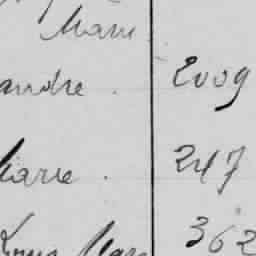 Marie
andre . 2009
Marie . 247
Louis Marie 362